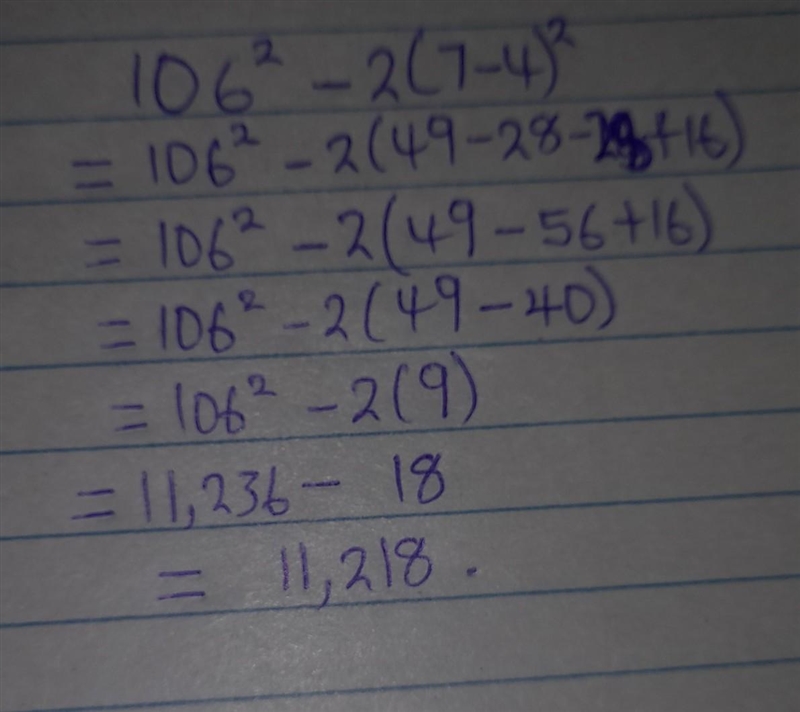 106² - 2(7-4)²
= 106² - 2(49 - 28 - 28 + 16)
= 106² - 2(49 - 56 + 16)
= 106² - 2(49 - 40)
= 106² - 2(9)
= 11,236 - 18
= 11,218.